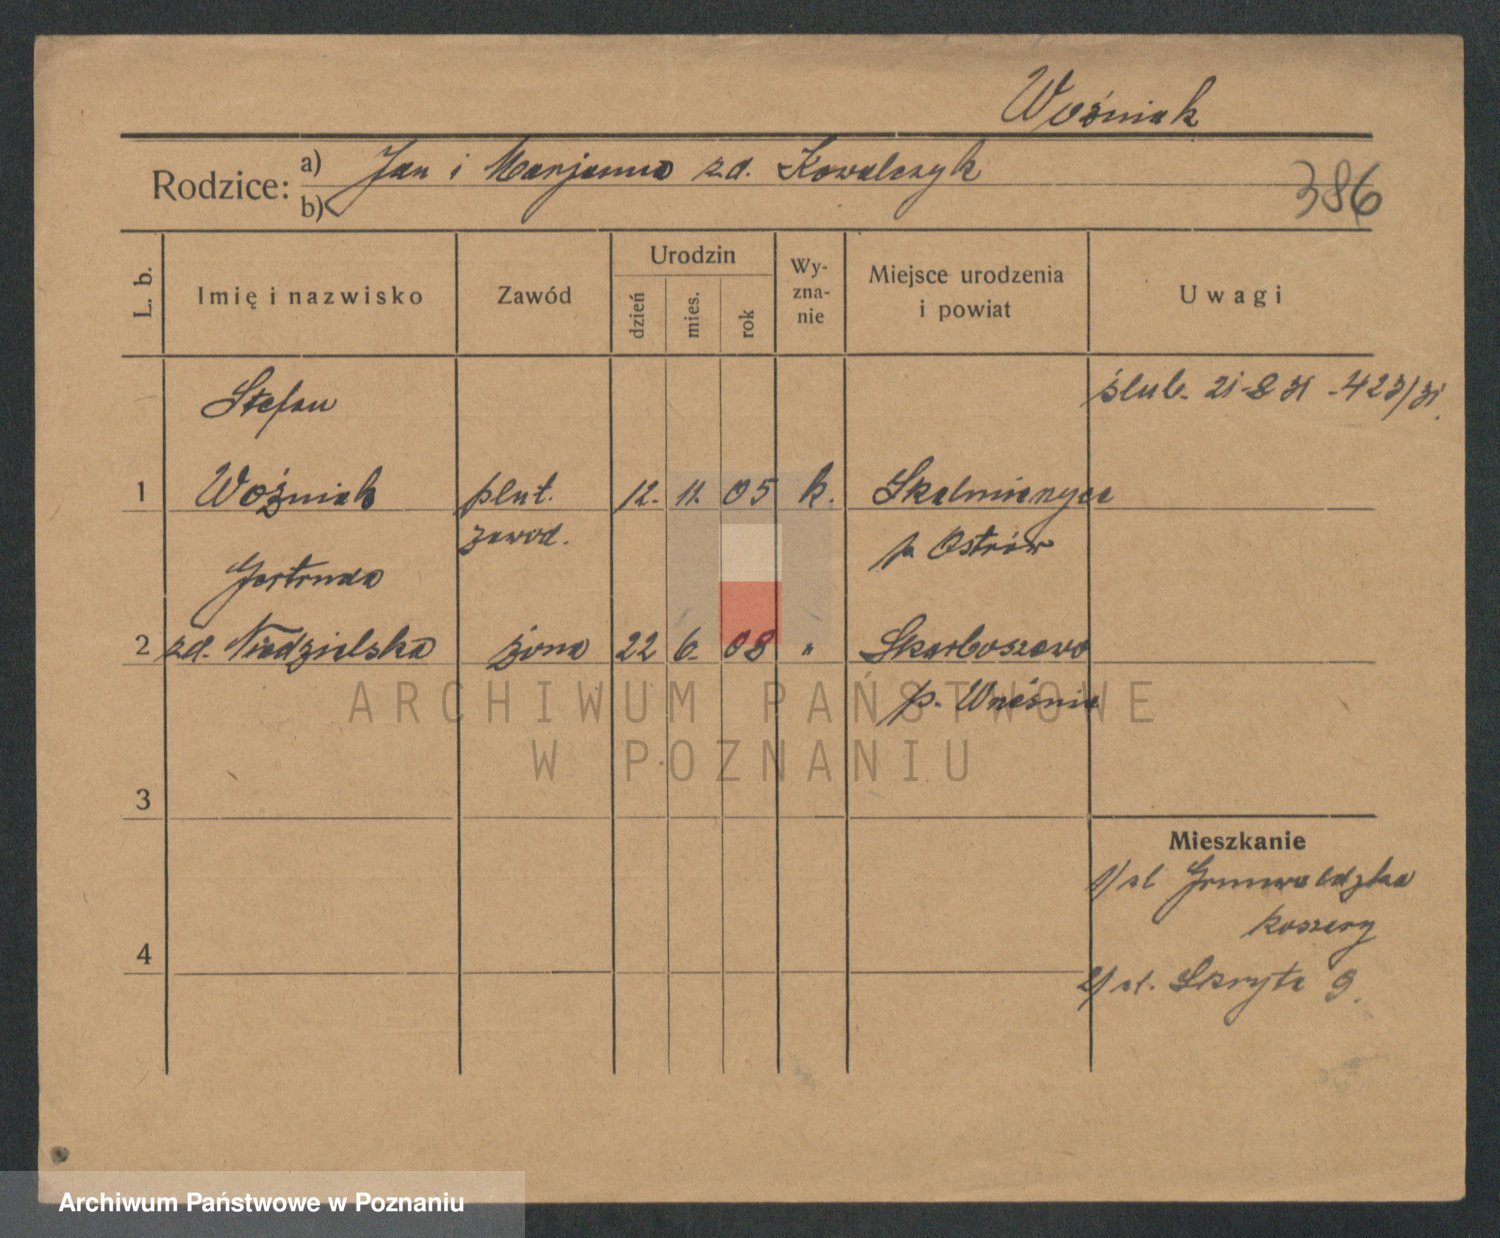 Woźniak
Rodzice: a) Jan i Marjanna zd. Kowalczyk
b)
386
L. b.
Imię i nazwisko
Zawód
Urodzin
dzień
mies.
rok
Wy-
zna-
nie
Miejsce urodzenia
i powiat
Uwagi
Stefan
ślub. 21-8 31 - 423/31.
1 Woźniak plut. 12. 11. 05 k. Skalmierzyce
zawod. p. Ostrów
Gertruda
2 zd. Niedzielska żona 22 6. 08 " Skarboszewo
p. Września
ARCHIWUM PAŃSTWOWE
W POZNANIU
3
Mieszkanie
1/ ul Grunwaldzka
koszary
4
2/ ul. Skryta 9.
Archiwum Państwowe w Poznaniu